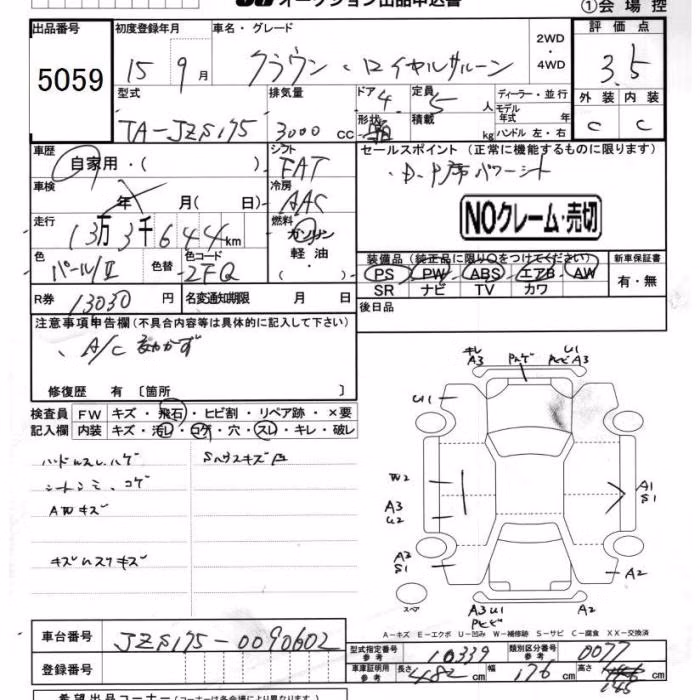 オークション出品申込書
①会場控
出品番号 初度登録年月 車名・グレード 2WD・4WD 評価点
5059 15年9月 クラウン・ロイヤルサルーン 3.5
型式 排気量 ドア 4 定員 5人 ディーラー・並行 外装 内装
TA-JZS175 3000cc 形状 積載 kg モデル年式 年 ハンドル 左・右 C C
車歴 シフト セールスポイント(正常に機能するものに限ります)
自家用・( ) FAT ・D.P席パワーシート
車検 冷房
年 月( 日) AAC
走行 燃料 NOクレーム・売切
13万3千644km ガソリン
軽油
色 色替 色コード ・( ) 装備品(純正品に限り○をつけてください) 新車保証書
パール/II 2FQ PS PW ABS エアB AW 有・無
SR ナビ TV カワ
R券 13030円 名変通知期限 月 日 後日品
注意事項申告欄(不具合内容等は具体的に記入して下さい)
、A/C 効かず
修復歴 有〔箇所 〕
検査員 FW キズ・飛石・ヒビ割・リペア跡・×要
記入欄 内装 キズ・汚レ・コゲ・穴・スレ・キレ・破レ
ハンドルスレ、ハゲ
シートシミ、コゲ
AWキズ
キレ A3
U1
A3
U1
W2
A3
U2
A2
S1
A1
S1
A2
スペア
A3 U1
A2
A-キズ E-エクボ U-凹み W-補修跡 S-サビ C-腐食 XX-交換済
車台番号 JZS175-0090602
型式指定番号 参考 10339 類別区分番号 参考 0077
登録番号
車庫証明用 参考 長さ 482cm 幅 176cm 高さ 146cm
希望出品コーナー(コーナーは各会場により異なります)